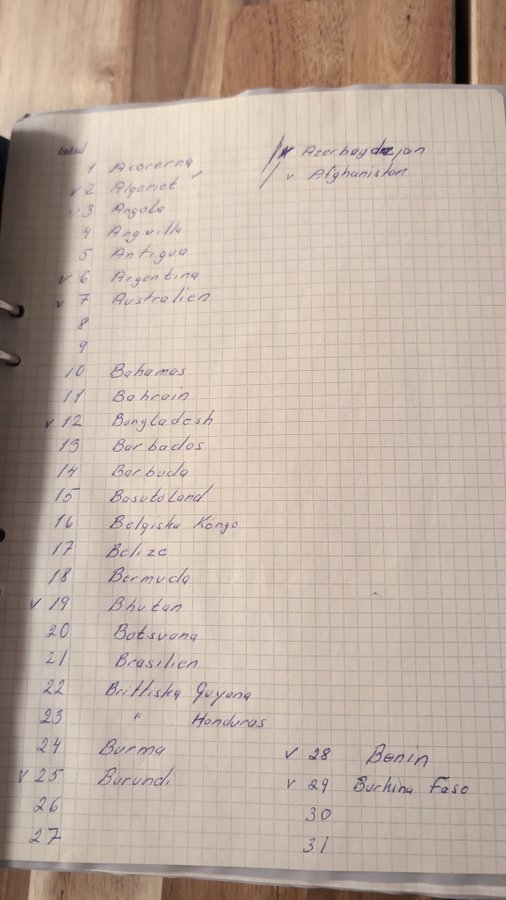 1 Acorerna
v Azerbaydzjan
v 2 Algeriet "
v Afghanistan
v 3 Angola
4 Anguilla
5 Antigua
v 6 Argentina
v 7 Australien
8
9
10 Bahamas
11 Bahrain
v 12 Bangladesh
13 Barbados
14 Barbuda
15 Basutoland
16 Belgiska Kongo
17 Belize
18 Bermuda
v 19 Bhutan
20 Botsvana
21 Brasilien
22 Brittiska Guyana
23 " Honduras
24 Burma
v 28 Benin
v 25 Burundi
v 29 Burkina Faso
26
30
27
31